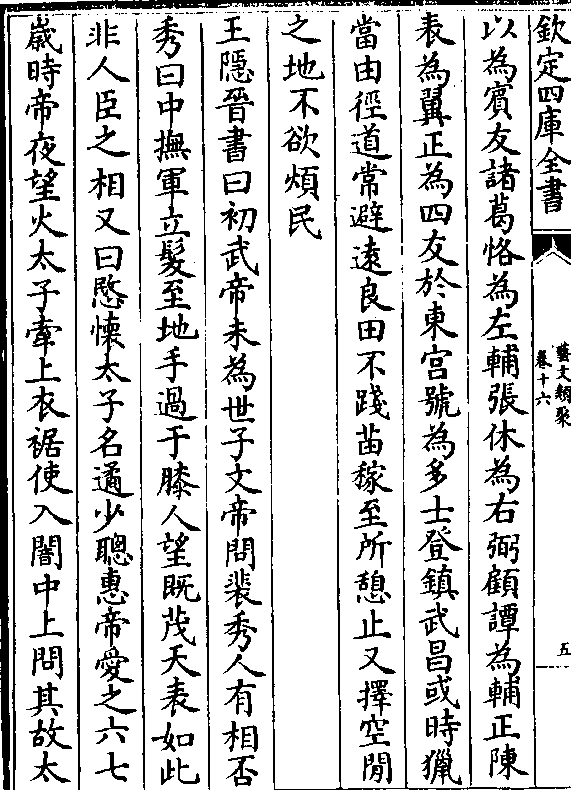 欽定四庫全書
藝文類聚
卷十六
五
以為賓友諸葛恪為左輔張休為右弼顧譚為輔正陳
表為翼正為四友於東宮號為多士登鎮武昌或時獵
當由徑道常避遠良田不踐苗稼至所憩止又擇空閒
之地不欲煩民
王隱晉書曰初武帝未為世子文帝問裴秀人有相否
秀曰中撫軍立髮至地手過于膝人望既茂天表如此
非人臣之相又曰愍懷太子名遹少聰惠帝愛之六七
嵗時帝夜望火太子牽上衣裾使入闇中上問其故太